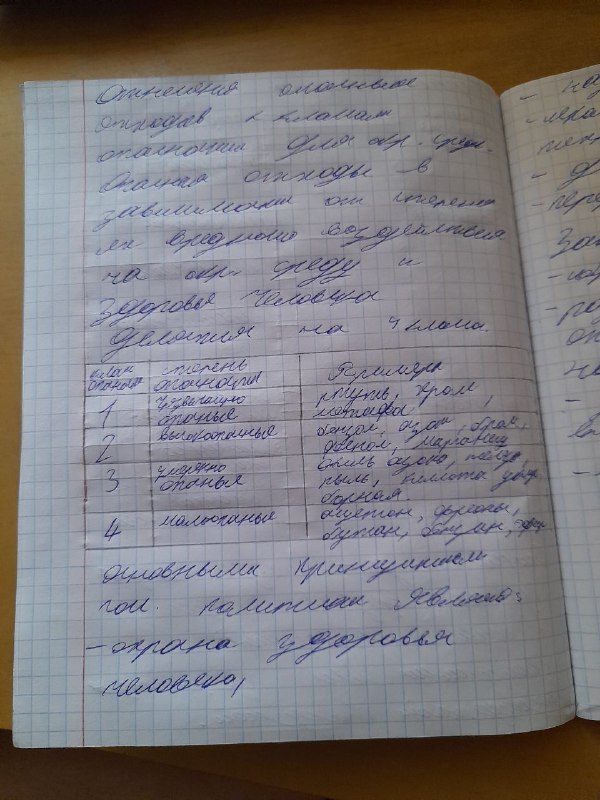 Отнесения опасных
отходов к классам
опасности для окр. среды.
Опасная отходы в
зависимости от степени
их вредного воздействия
на окр. среду и
здоровье человека
делятся на 4 класса.
класс опасн. степень опасности Примеры
1 чрезвычайно опасные ртуть, хром,
2 высокоопасные бензол, озон, бром, фенол, марганец
3 умеренно опасные пыль, кислота
борная.
4 малоопасные ацетон, фреоны,
бутан, бензин,
основными принципами
гос. политики являются
- охрана здоровья
человека,